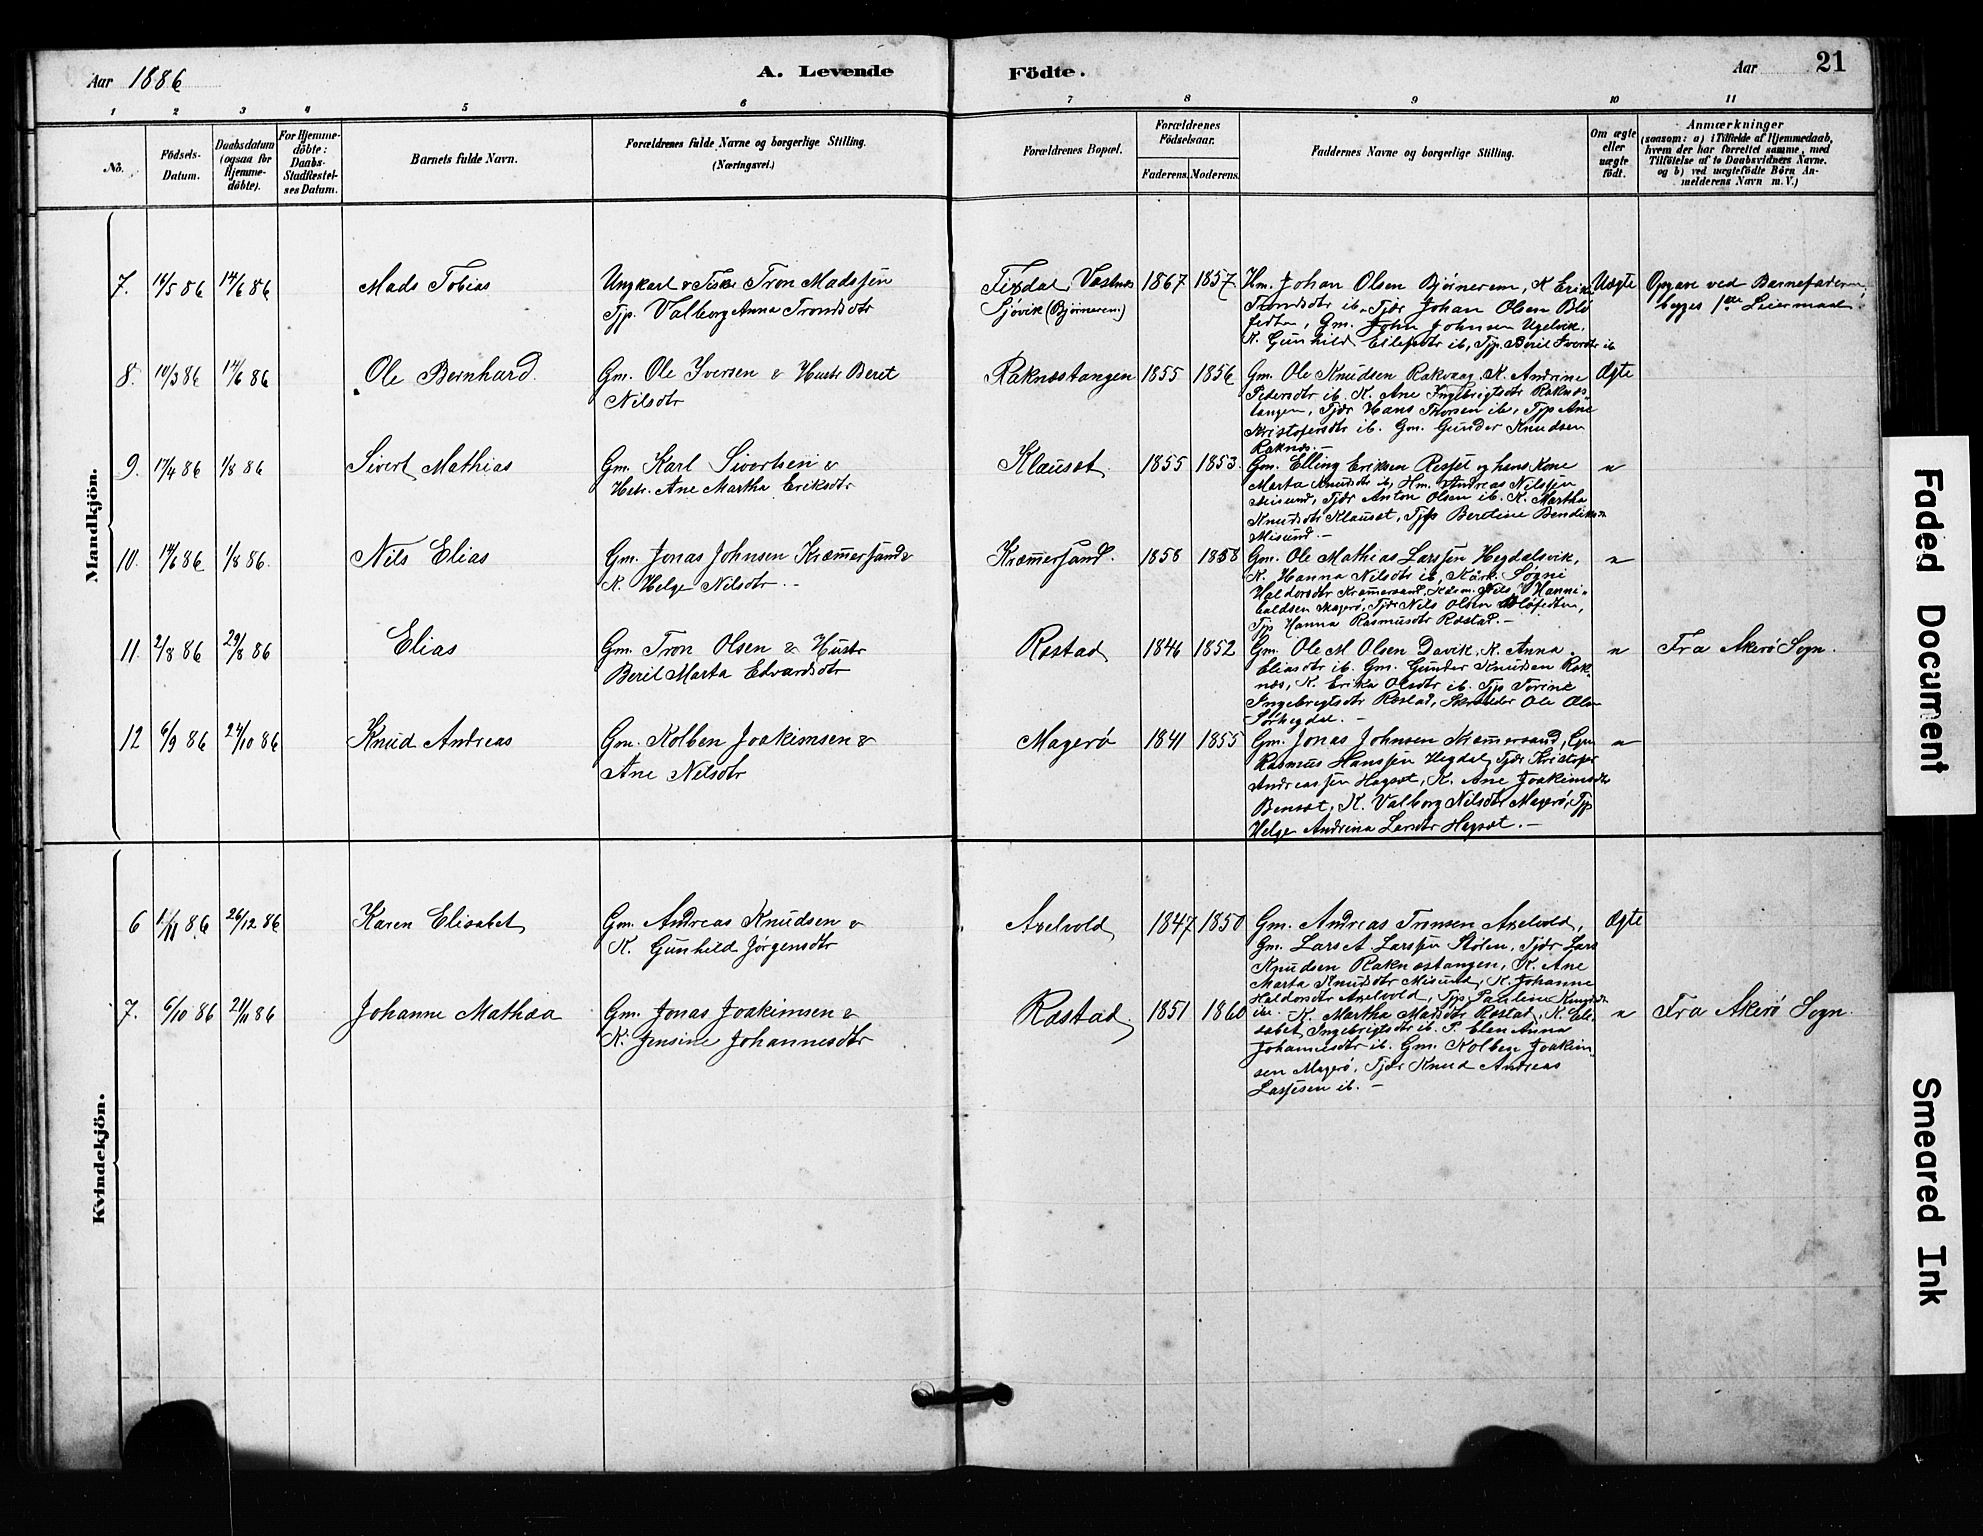 Aar 1886
A. Levende
Födte.
Aar
21
1
2
3
4
5
6
7
8
9
10
11
No.
Födsels-
Datum.
Daabsdatum
(ogsaa for
Hjemme-
döbte).
For Hjemme-
döbte:
Daabs-
Stadfæstel-
ses Datum.
Barnets fulde Navn.
Forældrenes fulde Navne og borgerlige Stilling.
(Næringsvei.)
Forældrenes Bopæl.
Forældrenes
Födselsaar.
Faderens.
Moderens.
Faddernes Navne og borgerlige Stilling.
Om ægte
eller
uægte
födt.
Anmærkninger
(saasom: a) i Tilfælde af Hjemmedaab,
hvem der har forrettet samme, med
Tilföielse af to Daabsvidners Navne.
og b) ved uægtefödte Börn An-
melderens Navn m. V.)
Mandkjön.
7.
14/5 86
14/6 86
Mads Tobias
Ungkarl & Fisker Tron Madssen
Tjp. Valborg Anna Tronsdtr
Fixdal, Vestnes
Sjøvik (Bjørnerem.)
1867
1857
Hm. Johan Olsen Bjørnerem, K. Erika
Tronsdtr ib. Tjdr Johan Olsen
Gm. John Johnsen Ugelvik,
K. Gunhild Ellefsdtr ib, Tjp. Beril Iversdtr ib
Uægte
Opgave ved Barnefaderen,
begges 1ste Leiermaal.
8.
10/3 86
14/6 86
Ole Bernhard.
Gm. Ole Iversen & Hustr Beret
Nilsdtr
Raknæstangen
1855
1856
Gm. Ole Knudsen Rakvaag, K. Andrine
Pedersdtr ib. K. Ane Ingebrigtsdtr Raknæs-
tangen, Tjdr Hans Thorsen ib, Tjp Ane
Kristofersdtr ib. Gm. Gunder Knudsen
Raknæs. —
Ægte
9.
17/4 86
1/8 86
Sivert Mathias
Gm. Karl Sivertsen &
Hstr. Ane Martha Eriksdtr
Klauset
1855
1853.
Gm. Elling Eriksen og hans Kone
Marta Knudsdtr ib, Hm. Andreas Nilssen
Misund, Tjdr Anton Olsen ib. K. Martha
Knudsdtr Klauset, Tjp Beroline Bendiksdtr
Misund. —
"
10.
14/6 86
1/8 86.
Nils Elias
Gm. Jonas Johnsen Kræmersand &
K. Helge Nilsdtr. -
Kræmersand.
1858
1858
Gm. Ole Mathias Larssen Hegdalsvik,
K. Hanna Nilsdtr ib, Kårk. Sogni
Haldorsdtr Kræmersand, Nils Hanni-
baldsen Magerø, Tjdr Nils Olsen
Tjp Hanna Rasmusdtr Rostad. —
"
11
2/8 86
29/8 86
Elias
Gm. Tron Olsen & Hustr
Beril Marta Edvardsdtr
Rostad
1846
1852
Gm. Ole M Olsen Davik, K. Anna
Eliasdtr ib. Gm. Gunder Knudsen Rak-
næs, K. Erika Olsdtr ib. Tjp Torine
Ingebrigtsdtr Rostad, Skrædder Ole Olsen
Sørhegdal. —
"
Fra Akerø Sogn.
12
6/9 86
24/10 86
Knud Andreas
Gm. Kolben Joakimsen &
Ane Nilsdtr
Magerø
1841
1855
Gm. Jonas Johnsen Kræmersand, Gm
Rasmus Hanssen Hegdal, Tjdr Kristofer
Andreassen Hagset, K. Ane Joakimsdtr
Benset, K. Valborg Nilsdtr Magerø, Tjp
Helge Andrina Larsdtr Hagset. —
"
Kvindekjön.
6
86
26/12 86
Karen Elisabet
Gm. Andreas Knudsen &
K. Gunhild Jørgensdtr
Axelvold
1847
1850
Gm. Andreas Tronsen Axelvold,
Gm. Lars A. Larssen Stølen, Tjdr Lars
Knudsen Raknæstangen, K. Ane
Marta Knudsdtr Misund, K. Johanne
Haldorsdtr Axelvold, Tjp. Pauline Knudsdtr
ib.
Ægte
7.
6/10 86
21/11 86
Johanne Mathea
Gm. Jonas Joakimsen &
K. Jensine Johannesdtr
Rostad.
1851
1860
K. Martha Madsdtr Rostad, K. Eli-
sabet Ingebrigtsdtr ib. P. Elen Anna
Johannesdtr ib. Gm. Kolben Joakim-
sen Magerø, Tjdr Knud Andreas
Lassesen ib. —
"
Fra Akerø Sogn.
Faded Document
Smeared Ink